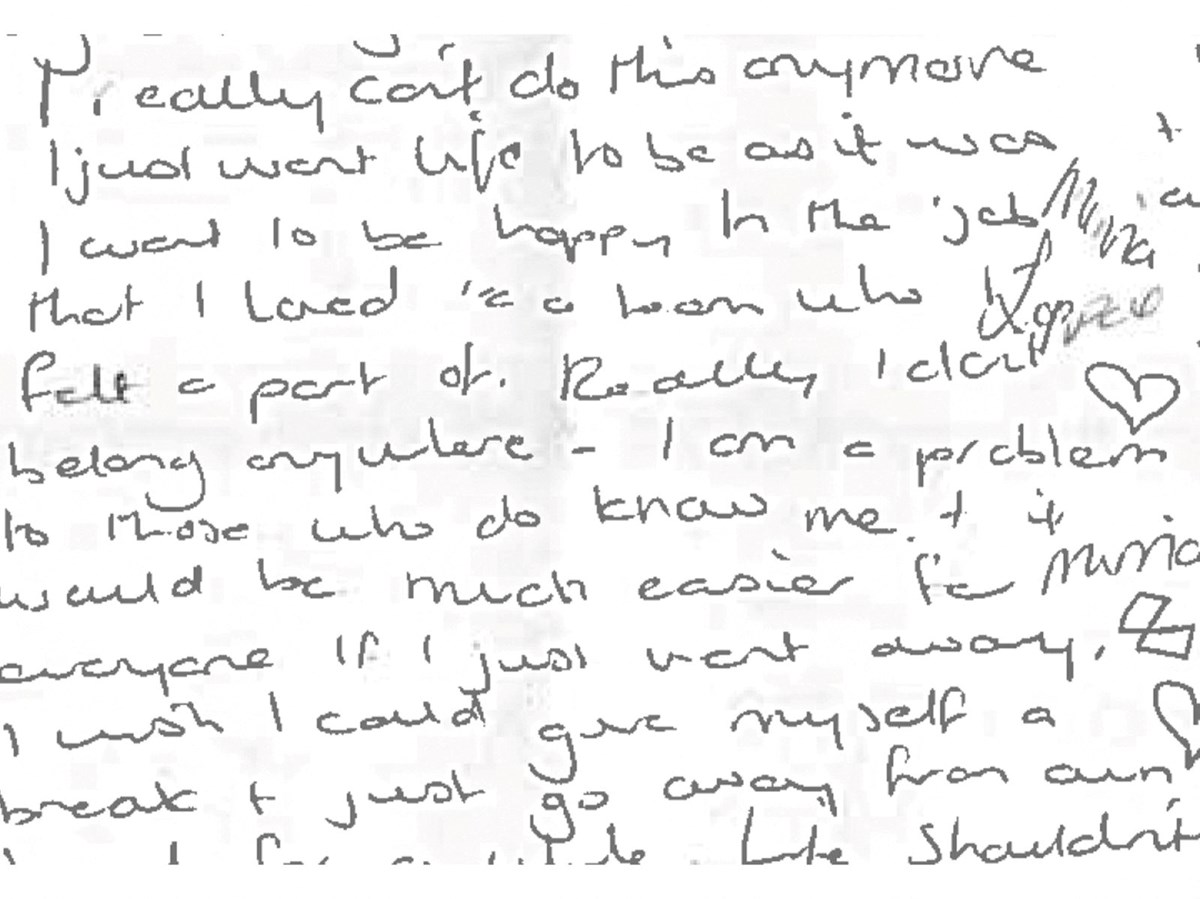 I really can't do this anymore
I just want life to be as it was
I want to be happy in the job
that I loved
felt a part of. Really I don't
belong anywhere - I am a problem
to those who do know me + it
would be much easier for
everyone if I just went away.
I wish I could give myself a
break + just go away from
Life shouldn't